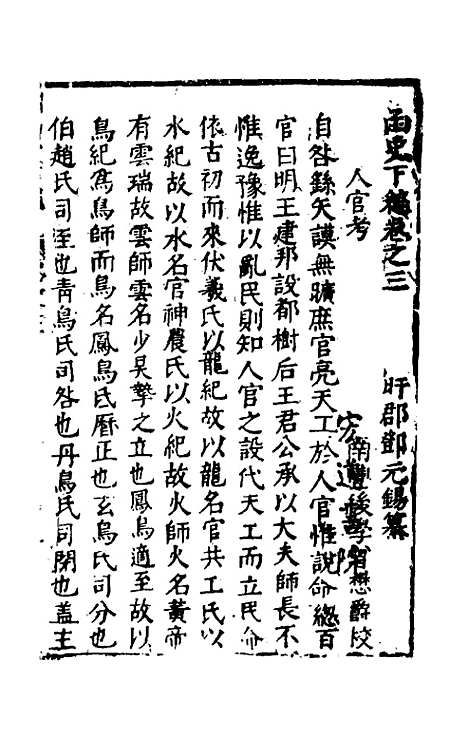 函史下編卷之三
盱郡鄧元錫纂
人官考
南豐後學 懋爵校
自咎繇矢謨無曠庶官亮天工於人官惟說命總百
官曰明王建邦設都樹后王君公承以大夫師長不
惟逸豫惟以亂民則知人官之設代天工而立民命
依古初而來伏羲氏以龍紀故以龍名官共工氏以
水紀故以水名官神農氏以火紀故火師火名黃帝
有雲瑞故雲師雲名少昊摯之立也鳳鳥適至故以
鳥紀爲鳥師而鳥名鳳鳥氏曆正也玄鳥氏司分也
伯趙氏司至也青鳥氏司啓也丹鳥氏司閉也蓋主